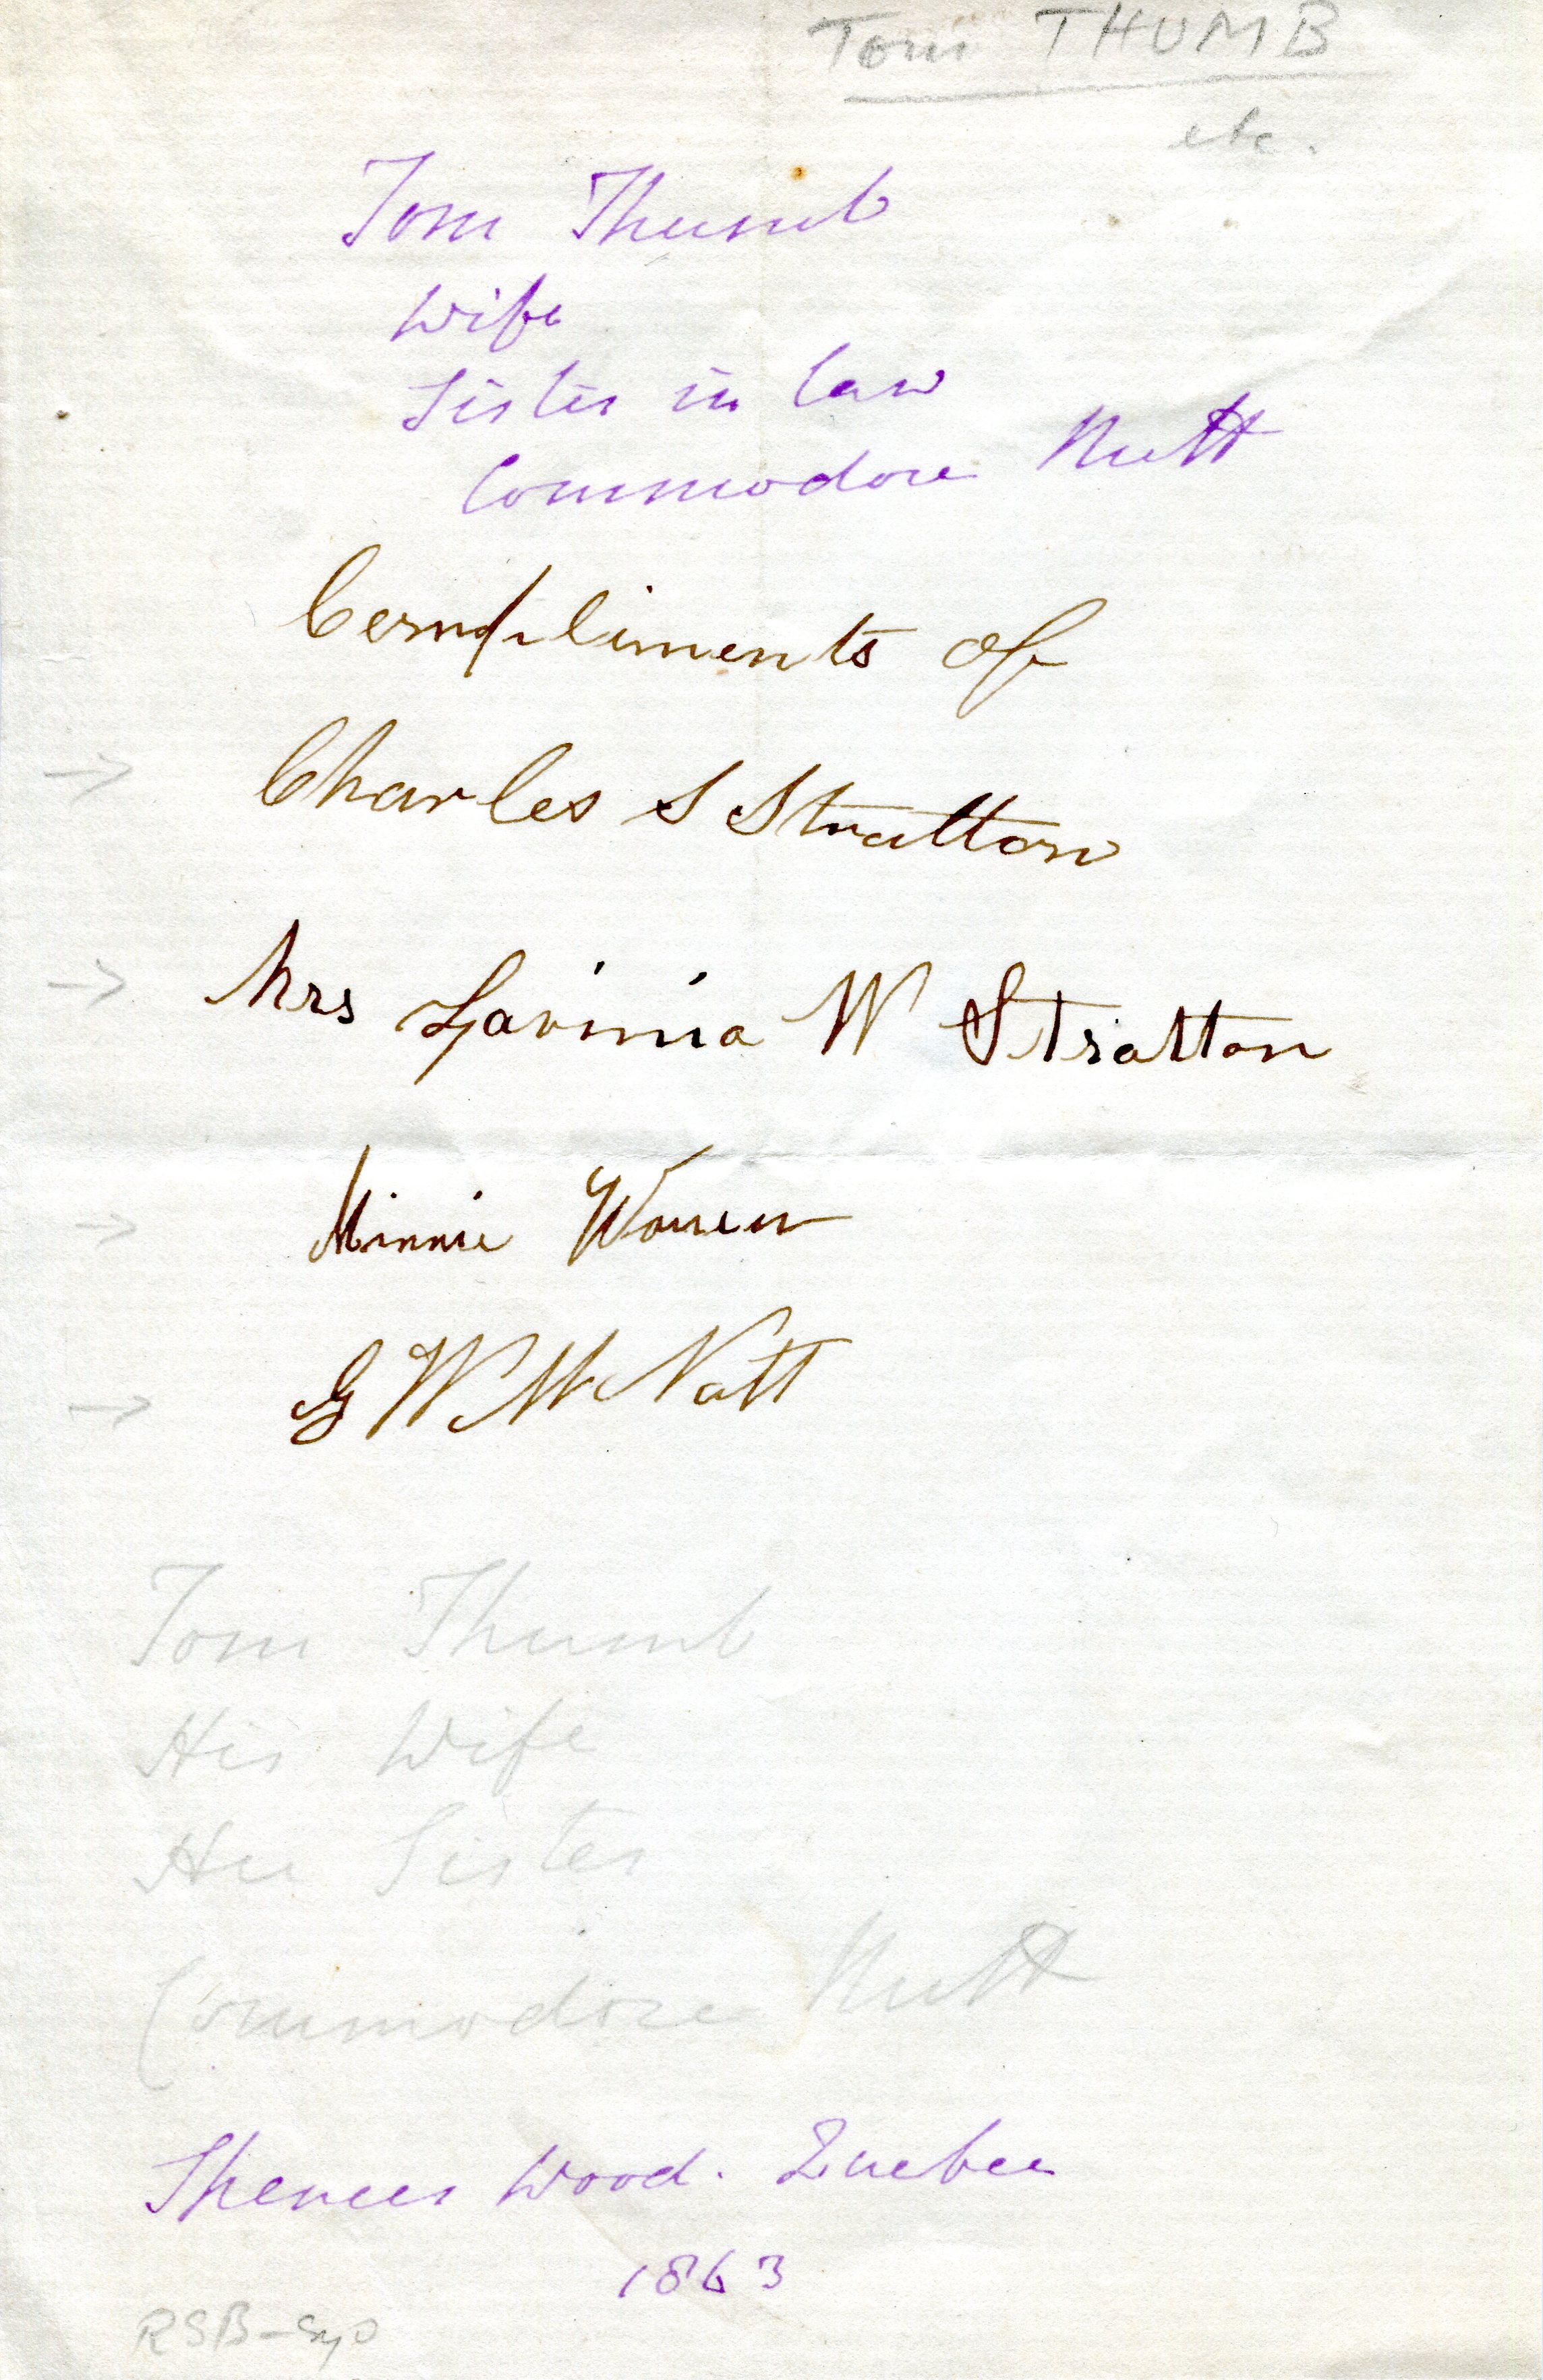 Tom THUMB
etc.
Tom Thumb
Wife
Sister in law
Commodore Nutt
Compliments of
→ Charles S Stratton
→ Mrs Lavinia W Stratton
→ Minnie Warren
→ G W M Nutt
Tom Thumb
His Wife
Her Sister
Commodore Nutt
Spencer Wood. Quebec
1863
RSB-